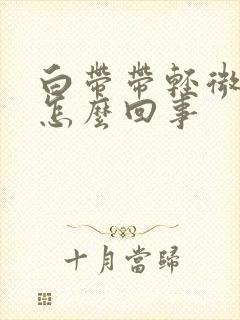 白帶帶輕微
怎麼回事
十月當歸